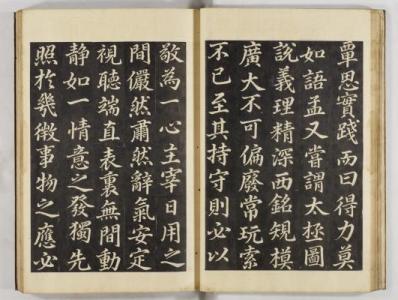 覃思實踐而曰得力莫
如語孟又嘗謂太極圖
說義理精深西銘規模
廣大不可偏廢常玩索
不已至其持守則必以
敬為一心主宰日用之
間儼然肅然辭氣安定
視聽端直表裏無間動
静如一情意之發獨先
照於幾微事物之應必